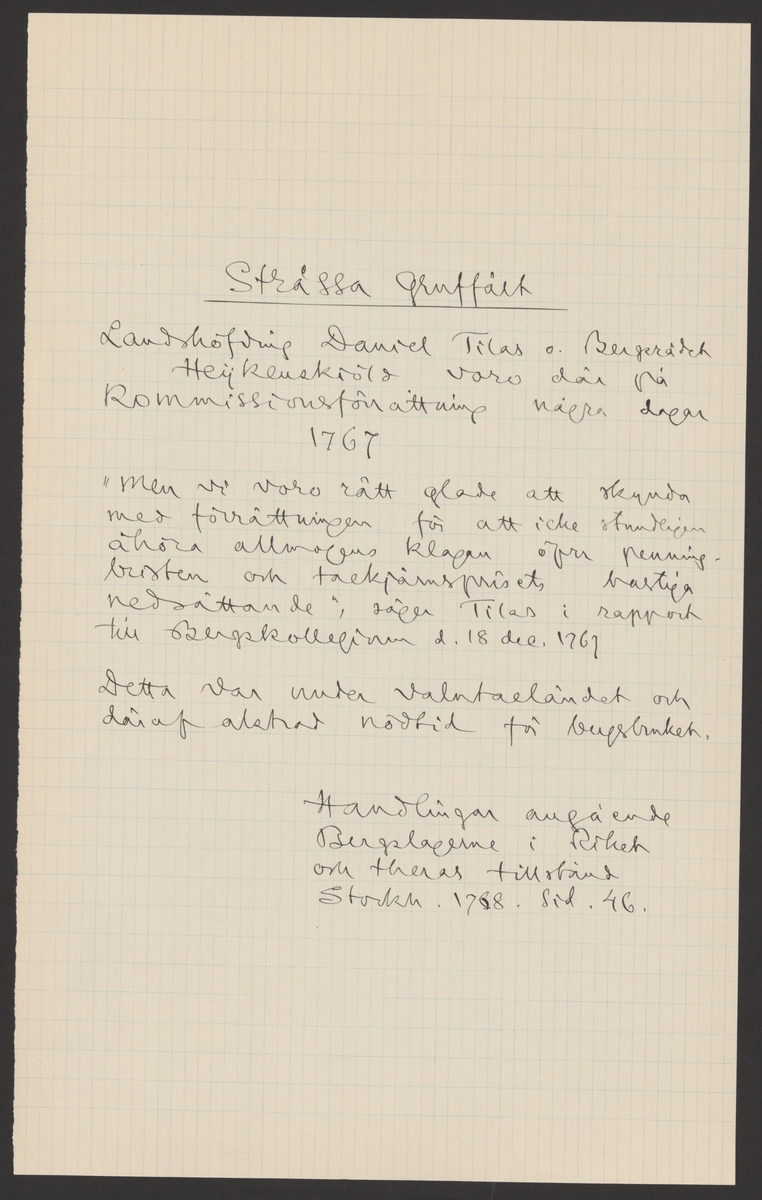 Stråssa Gruffält
Landshöfding Daniel Tilas o. Bergsrådet
Heijkenskiöld voro där på
Kommissionsförrättning några dagar
1767
"Men vi voro rätt glade att skynda
med förrättningen för att icke stundligen
åhöra allmogens klagan öfver penning-
bristen och tackjärnsprisets hastiga
nedsättande", säger Tilas i rapport
till Bergskollegium d. 18 dec. 1767
Detta var under valutaeländet och
däraf alstrad nödtid för bergsbruket.
Handlingar angående
Bergslagerne i Riket
och theras tillstånd
Stockh. 1768. Sid. 46.